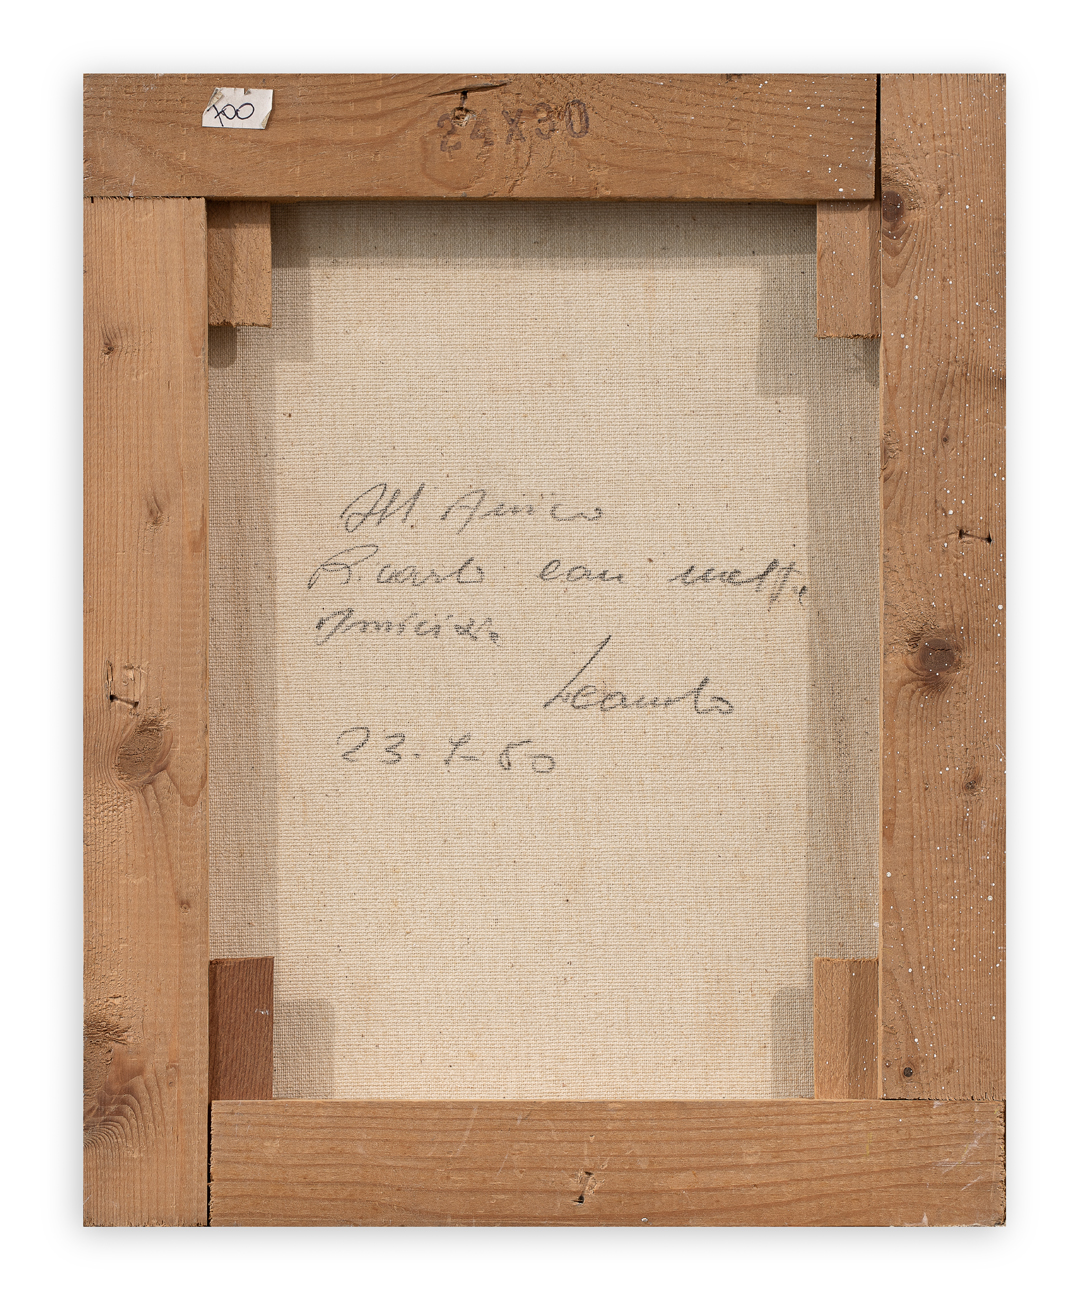 700
24X30
All. Amico
Ricardo con molta
Amicizia
Leandro
23.7-80